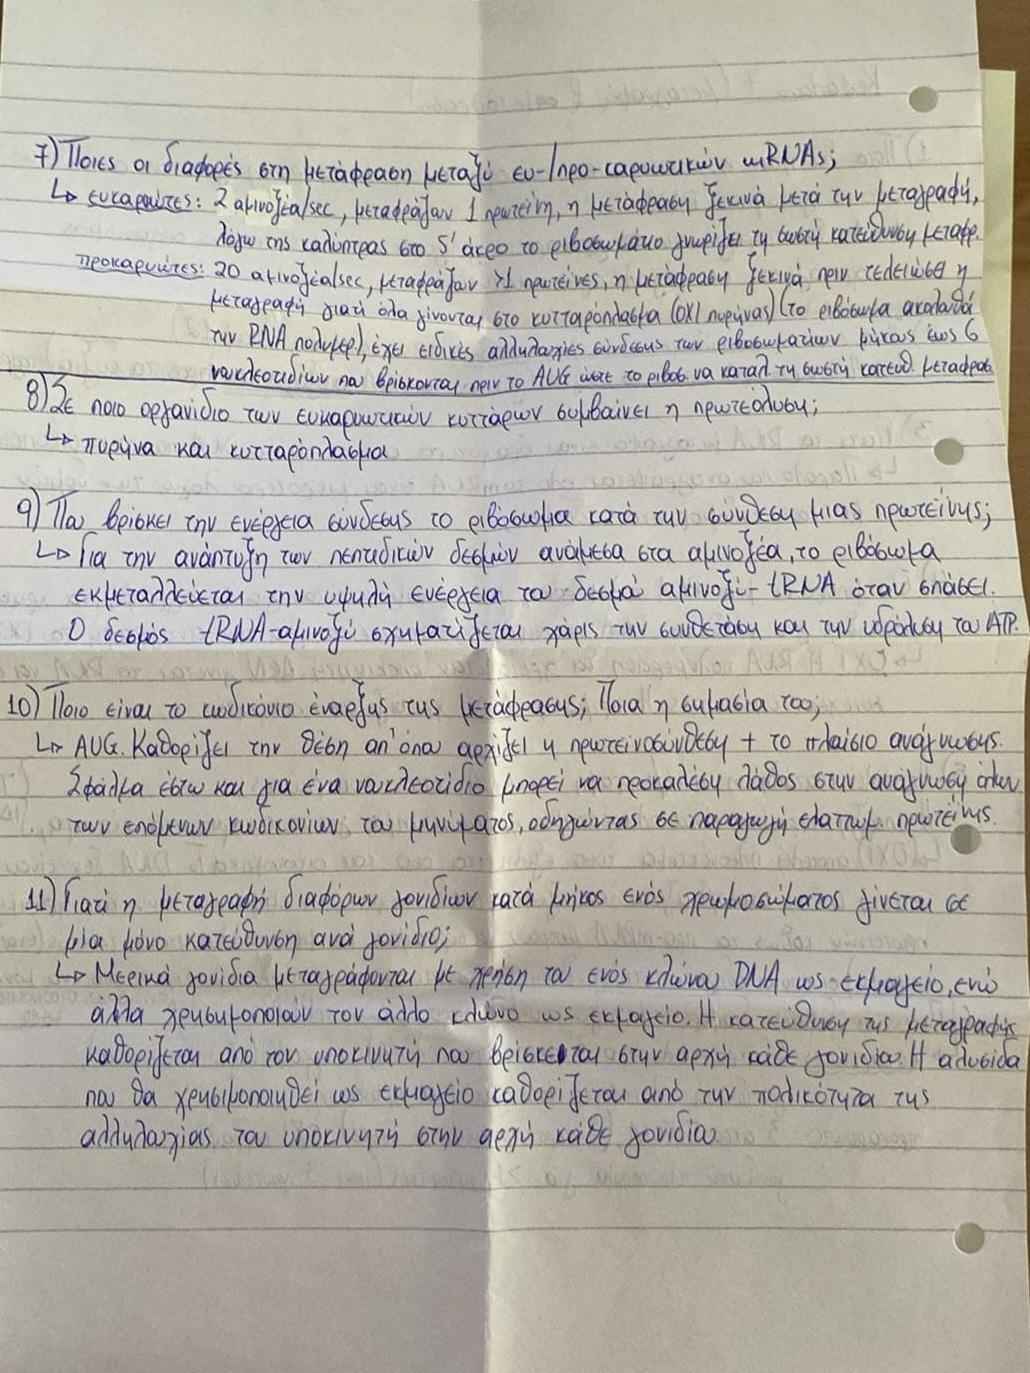 7) Ποιες οι διαφορές στη μετάφραση μεταξύ ευ-/προ-καρυωτικών mRNAs;
↳ ευκαρυώτες: 2 αμινοξέα/sec, μεταφράζουν 1 πρωτεΐνη, η μετάφραση ξεκινά μετά την μεταγραφή,
λόγω της καλύπτρας στο 5' άκρο το ριβοσωμάτιο γνωρίζει τη σωστή κατεύθυνση μεταφρ.
προκαρυώτες: 20 αμινοξέα/sec, μεταφράζουν >1 πρωτεΐνες, η μετάφραση ξεκινά πριν τελειώσει η
μεταγραφή γιατί όλα γίνονται στο κυτταρόπλασμα (ΟΧΙ πυρήνας) (το ριβόσωμα ακολουθά
την RNA πολυμερ.), έχει ειδικές αλληλουχίες σύνδεσης των ριβοσωματίων μήκους έως 6
νουκλεοτιδίων που βρίσκονται πριν το AUG ώστε το ριβοσ. να καταλ. τη σωστή κατευθ. μεταφρασ.
8) Σε ποιο οργανίδιο των ευκαρυωτικών κυττάρων συμβαίνει η πρωτεόλυση;
↳ πυρήνα και κυτταρόπλασμα
9) Που βρίσκει την ενέργεια σύνδεσης το ριβόσωμα κατά την σύνθεση μιας πρωτεΐνης;
↳ Για την ανάπτυξη των πεπτιδικών δεσμών ανάμεσα στα αμινοξέα, το ριβόσωμα
εκμεταλλεύεται την υψηλή ενέργεια του δεσμού αμινοξύ-tRNA όταν σπάσει.
Ο δεσμός tRNA-αμινοξύ σχηματίζεται χάρις την συνθετάση και την υδρόλυση του ATP.
10) Ποιο είναι το κωδικόνιο έναρξης της μετάφρασης; Ποια η σημασία του;
↳ AUG. Καθορίζει την θέση απ'όπου αρχίζει η πρωτεϊνοσύνθεση + το πλαίσιο ανάγνωσης.
Σφάλμα έστω και για ένα νουκλεοτίδιο μπορεί να προκαλέση λάθος στην ανάγνωση όλων
των επόμενων κωδικονίων του μηνύματος, οδηγώντας σε παραγωγή ελαττωμ. πρωτεΐνης.
11) Γιατί η μεταγραφή διαφόρων γονιδίων κατά μήκος ενός χρωμοσώματος γίνεται σε
μία μόνο κατεύθυνση ανά γονίδιο;
↳ Μερικά γονίδια μεταγράφονται με χρήση του ενός κλώνου DNA ως εκμαγείο, ενώ
άλλα χρησημοποιούν τον άλλο κλώνο ως εκμαγείο. Η κατεύθυνση της μεταγραφής
καθορίζεται από τον υποκινητή που βρίσκεται στην αρχή κάθε γονιδίου. Η αλυσίδα
που θα χρησιμοποιηθεί ως εκμαγείο καθορίζεται από την πολικότητα της
αλληλουχίας του υποκινητή στην αρχή κάθε γονιδίου